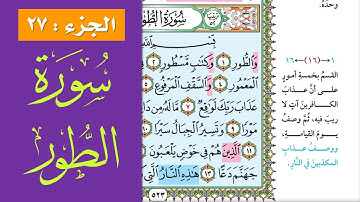 الجزء : ٢٧
سُورَة
الطُّور
سُورَةُ الطُّورِ
وَالطُّورِ ١ وَكِتَابٍ مَّسْطُورٍ ٢
الْمَعْمُورِ ٤ وَالسَّقْفِ الْمَرْفُوعِ ٥
عَذَابَ رَبِّكَ لَوَاقِعٌ ٧ مَّا لَهُ مِن دَ
مَوْرًا ٩ وَتَسِيرُ الْجِبَالُ سَيْرًا ١٠
١١ الَّذِينَ هُمْ فِي خَوْضٍ يَلْعَبُونَ
جَهَنَّمَ دَعًّا ١٣ هَٰذِهِ النَّارُ الَّتِي
٥٢٣
وحدَهُ.
١←(١٦)→١٦
القسَمُ بخمسةِ أمورٍ
على أنَّ عذابَ
الكافرينَ آتٍ لا
ريبَ فيه، ثُمَّ وصفُ
يومِ القيامةِ،
ووصفُ عذابِ
المكذبينَ في النَّارِ.